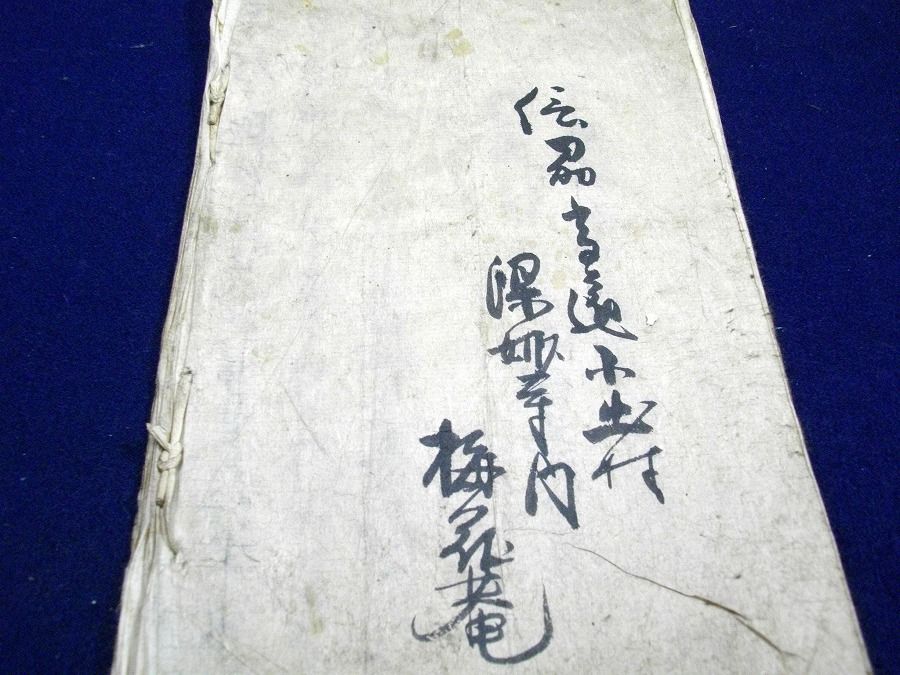 信州高遠小出村
深妙寺内
梅花菴